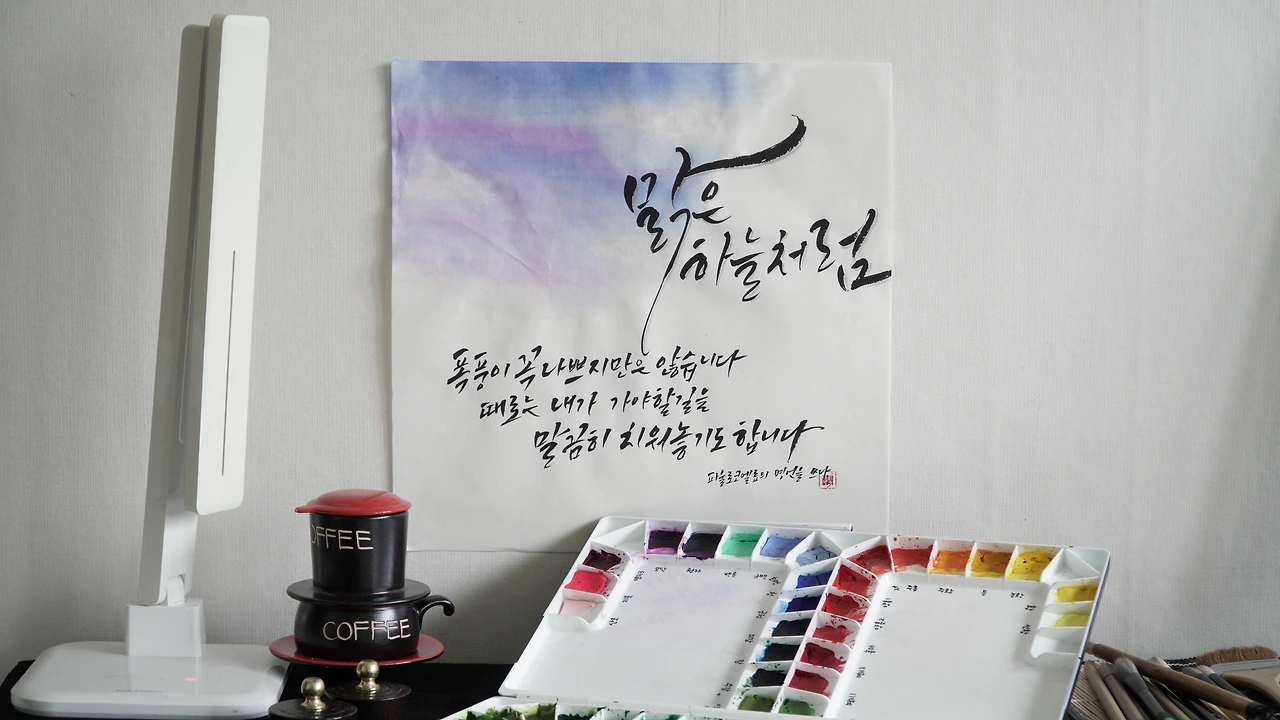 맑은
하늘처럼
폭풍이 꼭 나쁘지만은 않습니다
때로는 내가 가야할길을
말끔히 치워놓기도 합니다
파울로코엘료의 명언을 쓰다
OFFEE
COFFEE